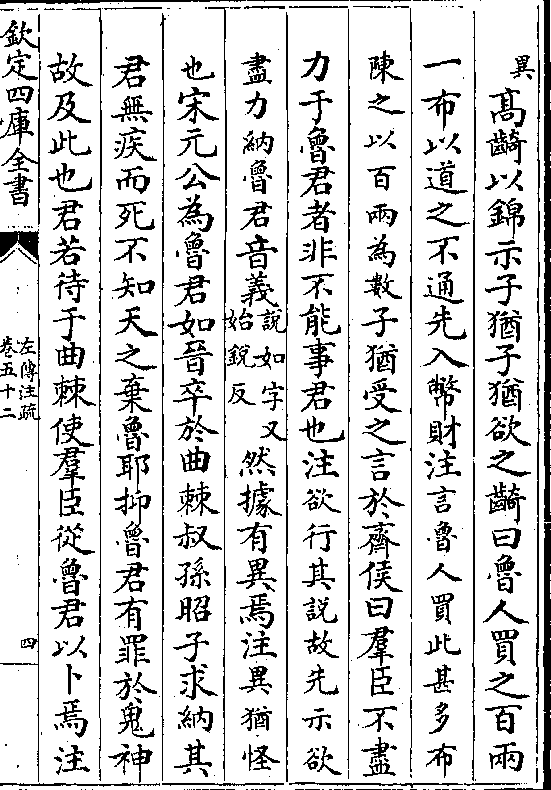 異高齮以錦示子猶子猶欲之齮曰魯人買之百兩
一布以道之不通先入幣財注言魯人買此甚多布
陳之以百兩為數子猶受之言於齊侯曰羣臣不盡
力于魯君者非不能事君也注欲行其說故先示欲
盡力納魯君音義說如字又始銳反然據有異焉注異猶怪
也宋元公為魯君如晉卒於曲棘叔孫昭子求納其
君無疾而死不知天之棄魯耶抑魯君有罪於鬼神
故及此也君若待于曲棘使羣臣從魯君以卜焉注
欽定四庫全書
左傳注疏
卷五十二
四